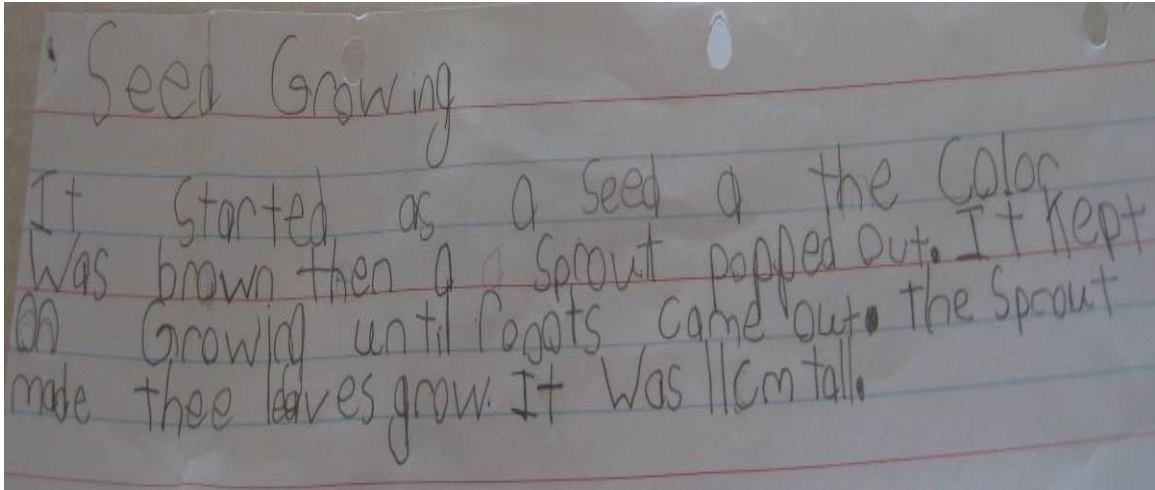 Seed Growing
It started as a Seed a the Color
Was brown then a Sprout popped out. It Kept
on Growing until rooots came out. the Sprout
made thee leaves grow. It Was 11cm tall.